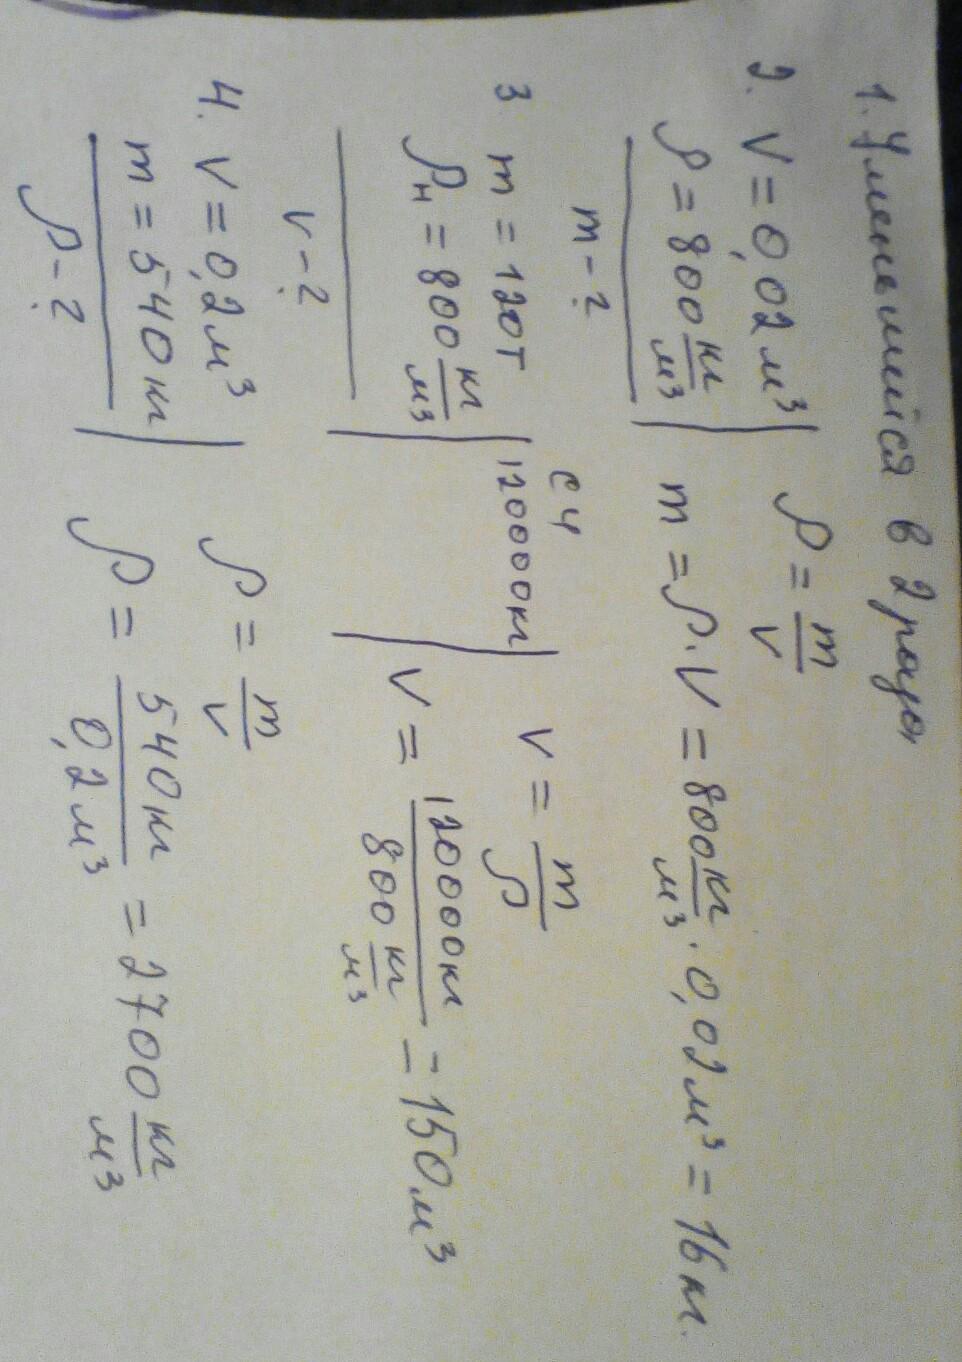 1. Уменьшится в 2 раза
2. V = 0,02 м³
ρ = 800 кг/м³
m - ?
ρ = m/V
m = ρ · V = 800 кг/м³ · 0,02 м³ = 16 кг.
3 m = 120т
ρн = 800 кг/м³
V - ?
СИ
120000кг
V = m/ρ
V = 120000кг / 800 кг/м³ = 150 м³
4. V = 0,2 м³
m = 540 кг
ρ - ?
ρ = m/V
ρ = 540 кг / 0,2 м³ = 2700 кг/м³